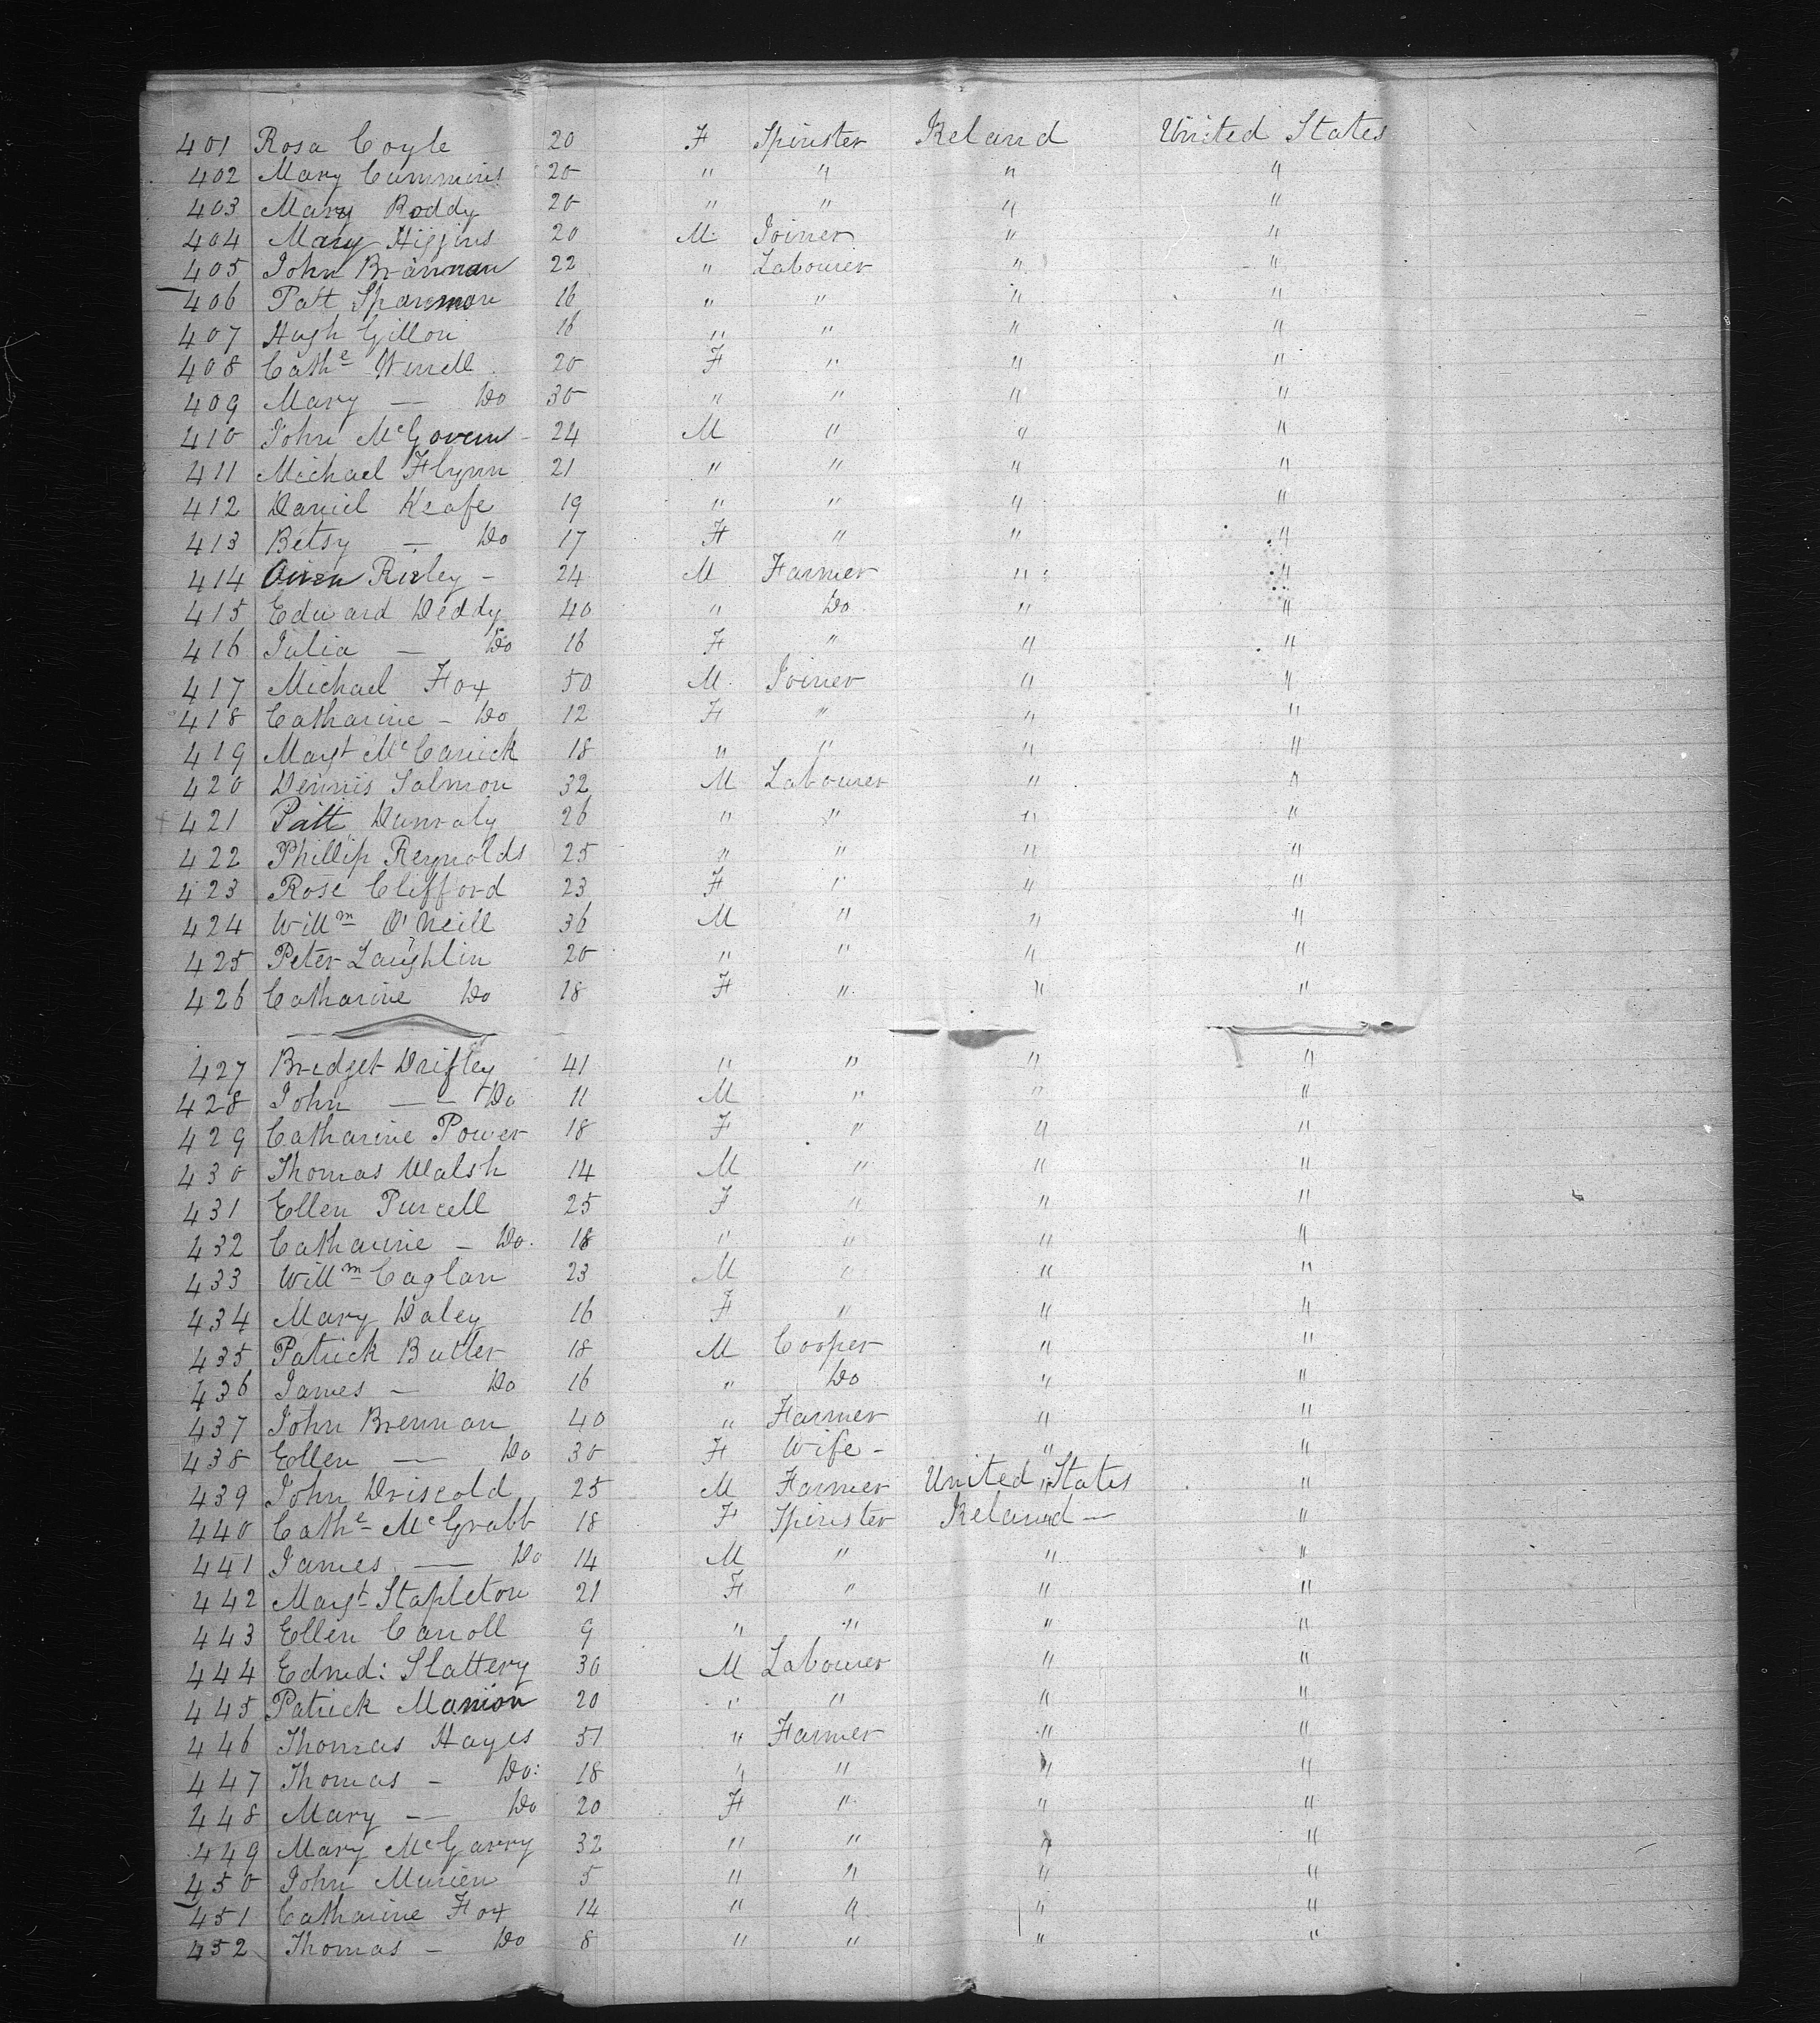 401 Rosa Coyle 20 F Spinster Ireland United States
402 Mary Cummins 20 " " " "
403 Mary Roddy 20 " " " "
404 Mary Higgins 20 M Joiner " "
405 John Brannan 22 " Labourer " "
406 Patt 16 " " " "
407 Hugh Gillon 16 " " " "
408 Cathe 20 F " " "
409 Mary — Do 30 " " " "
410 John McGovern 24 M " " "
411 Michael Flynn 21 " " " "
412 Daniel Keafe 19 " " " "
413 Betsy — Do 17 F " " "
414 Owen 24 M Farmer " "
415 Edward Deddy 40 " Do " "
416 Julia — Do 16 F " " "
417 Michael Fox 50 M Joiner " "
418 Catharine — Do 12 F " " "
419 Margt McCarrick 18 " " " "
420 Dennis Salmon 32 M Labourer " "
421 Patt 26 " " " "
422 Phillip Reynolds 25 " " " "
423 Rose Clifford 23 F " " "
424 Willm O'Neill 36 M " " "
425 Peter Laughlin 20 " " " "
426 Catharine Do 18 F " " "
427 Bridget 41 " " " "
428 John — — Do 11 M " " "
429 Catharine Power 18 F " " "
430 Thomas Walsh 14 M " " "
431 Ellen Purcell 25 F " " "
432 Catharine — Do. 18 " " " "
433 Willm Caglan 23 M " " "
434 Mary Daley 16 F " " "
435 Patrick Butler 18 M Cooper " "
436 James — Do 16 " Do " "
437 John Brennan 40 " Farmer " "
438 Ellen — Do 30 F Wife - " "
439 John Driscold 25 M Farmer United States "
440 Cathe McGrabb 18 F Spinster Ireland — "
441 James — Do 14 M " " "
442 Margt Stapleton 21 F " " "
443 Ellen Carroll 9 " " " "
444 Edmd: Slattery 30 M Labourer " "
445 Patrick Manion 20 " " " "
446 Thomas Hayes 51 " Farmer " "
447 Thomas — Do: 18 " " " "
448 Mary — Do 20 F " " "
449 Mary McGarry 32 " " " "
450 John 5 " " " "
451 Catharine Fox 14 " " " "
452 Thomas — Do 8 " " " "